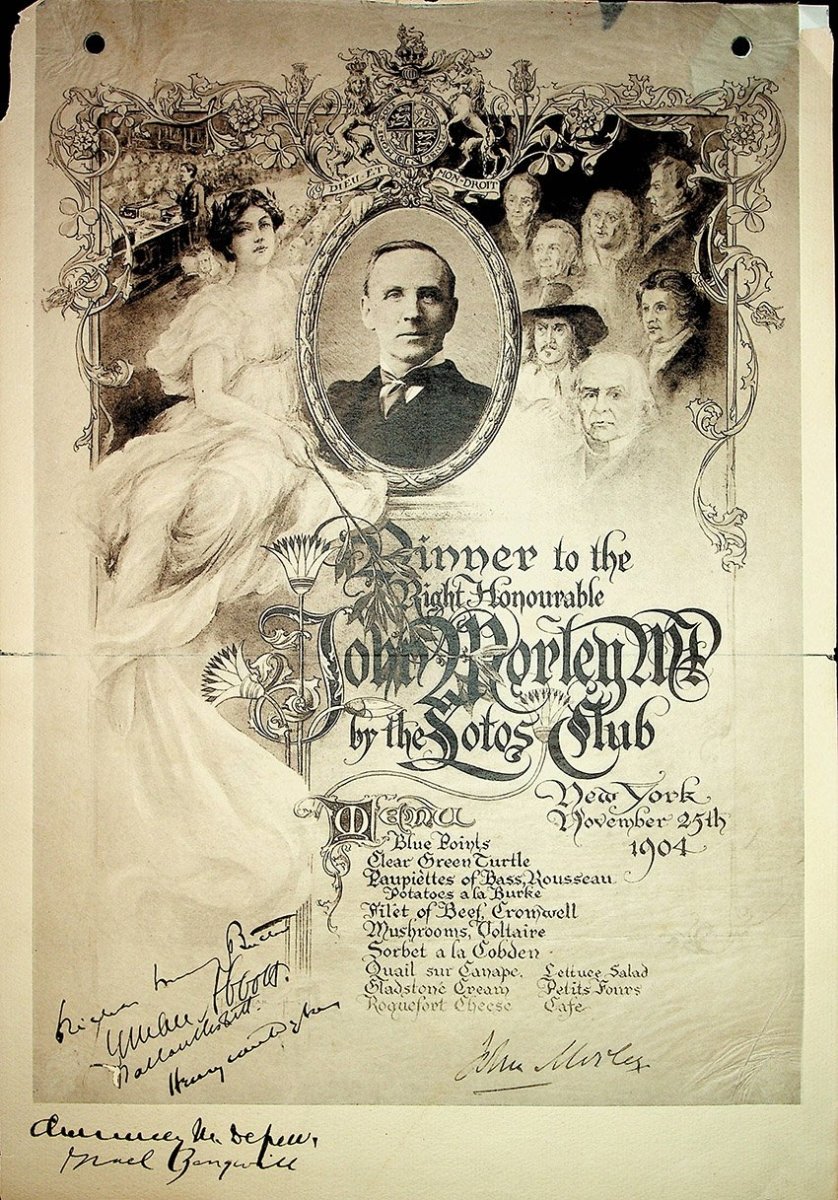 DIEU ET MON DROIT
Dinner to the
Right Honourable
John Morley MP
by the Lotos Club
New York
November 25th
1904
Menu
Blue Points
Clear Green Turtle
Paupiettes of Bass, Rousseau
Potatoes a la Burke
Filet of Beef, Cromwell
Mushrooms, Voltaire
Sorbet a la Cobden
Quail sur Canape. Lettuce Salad
Gladstone Cream Petits Fours
Roquefort Cheese Cafe
Lyman Abbott.
Henry
John Morley
Chauncey M. Depew.
Israel Zangwill